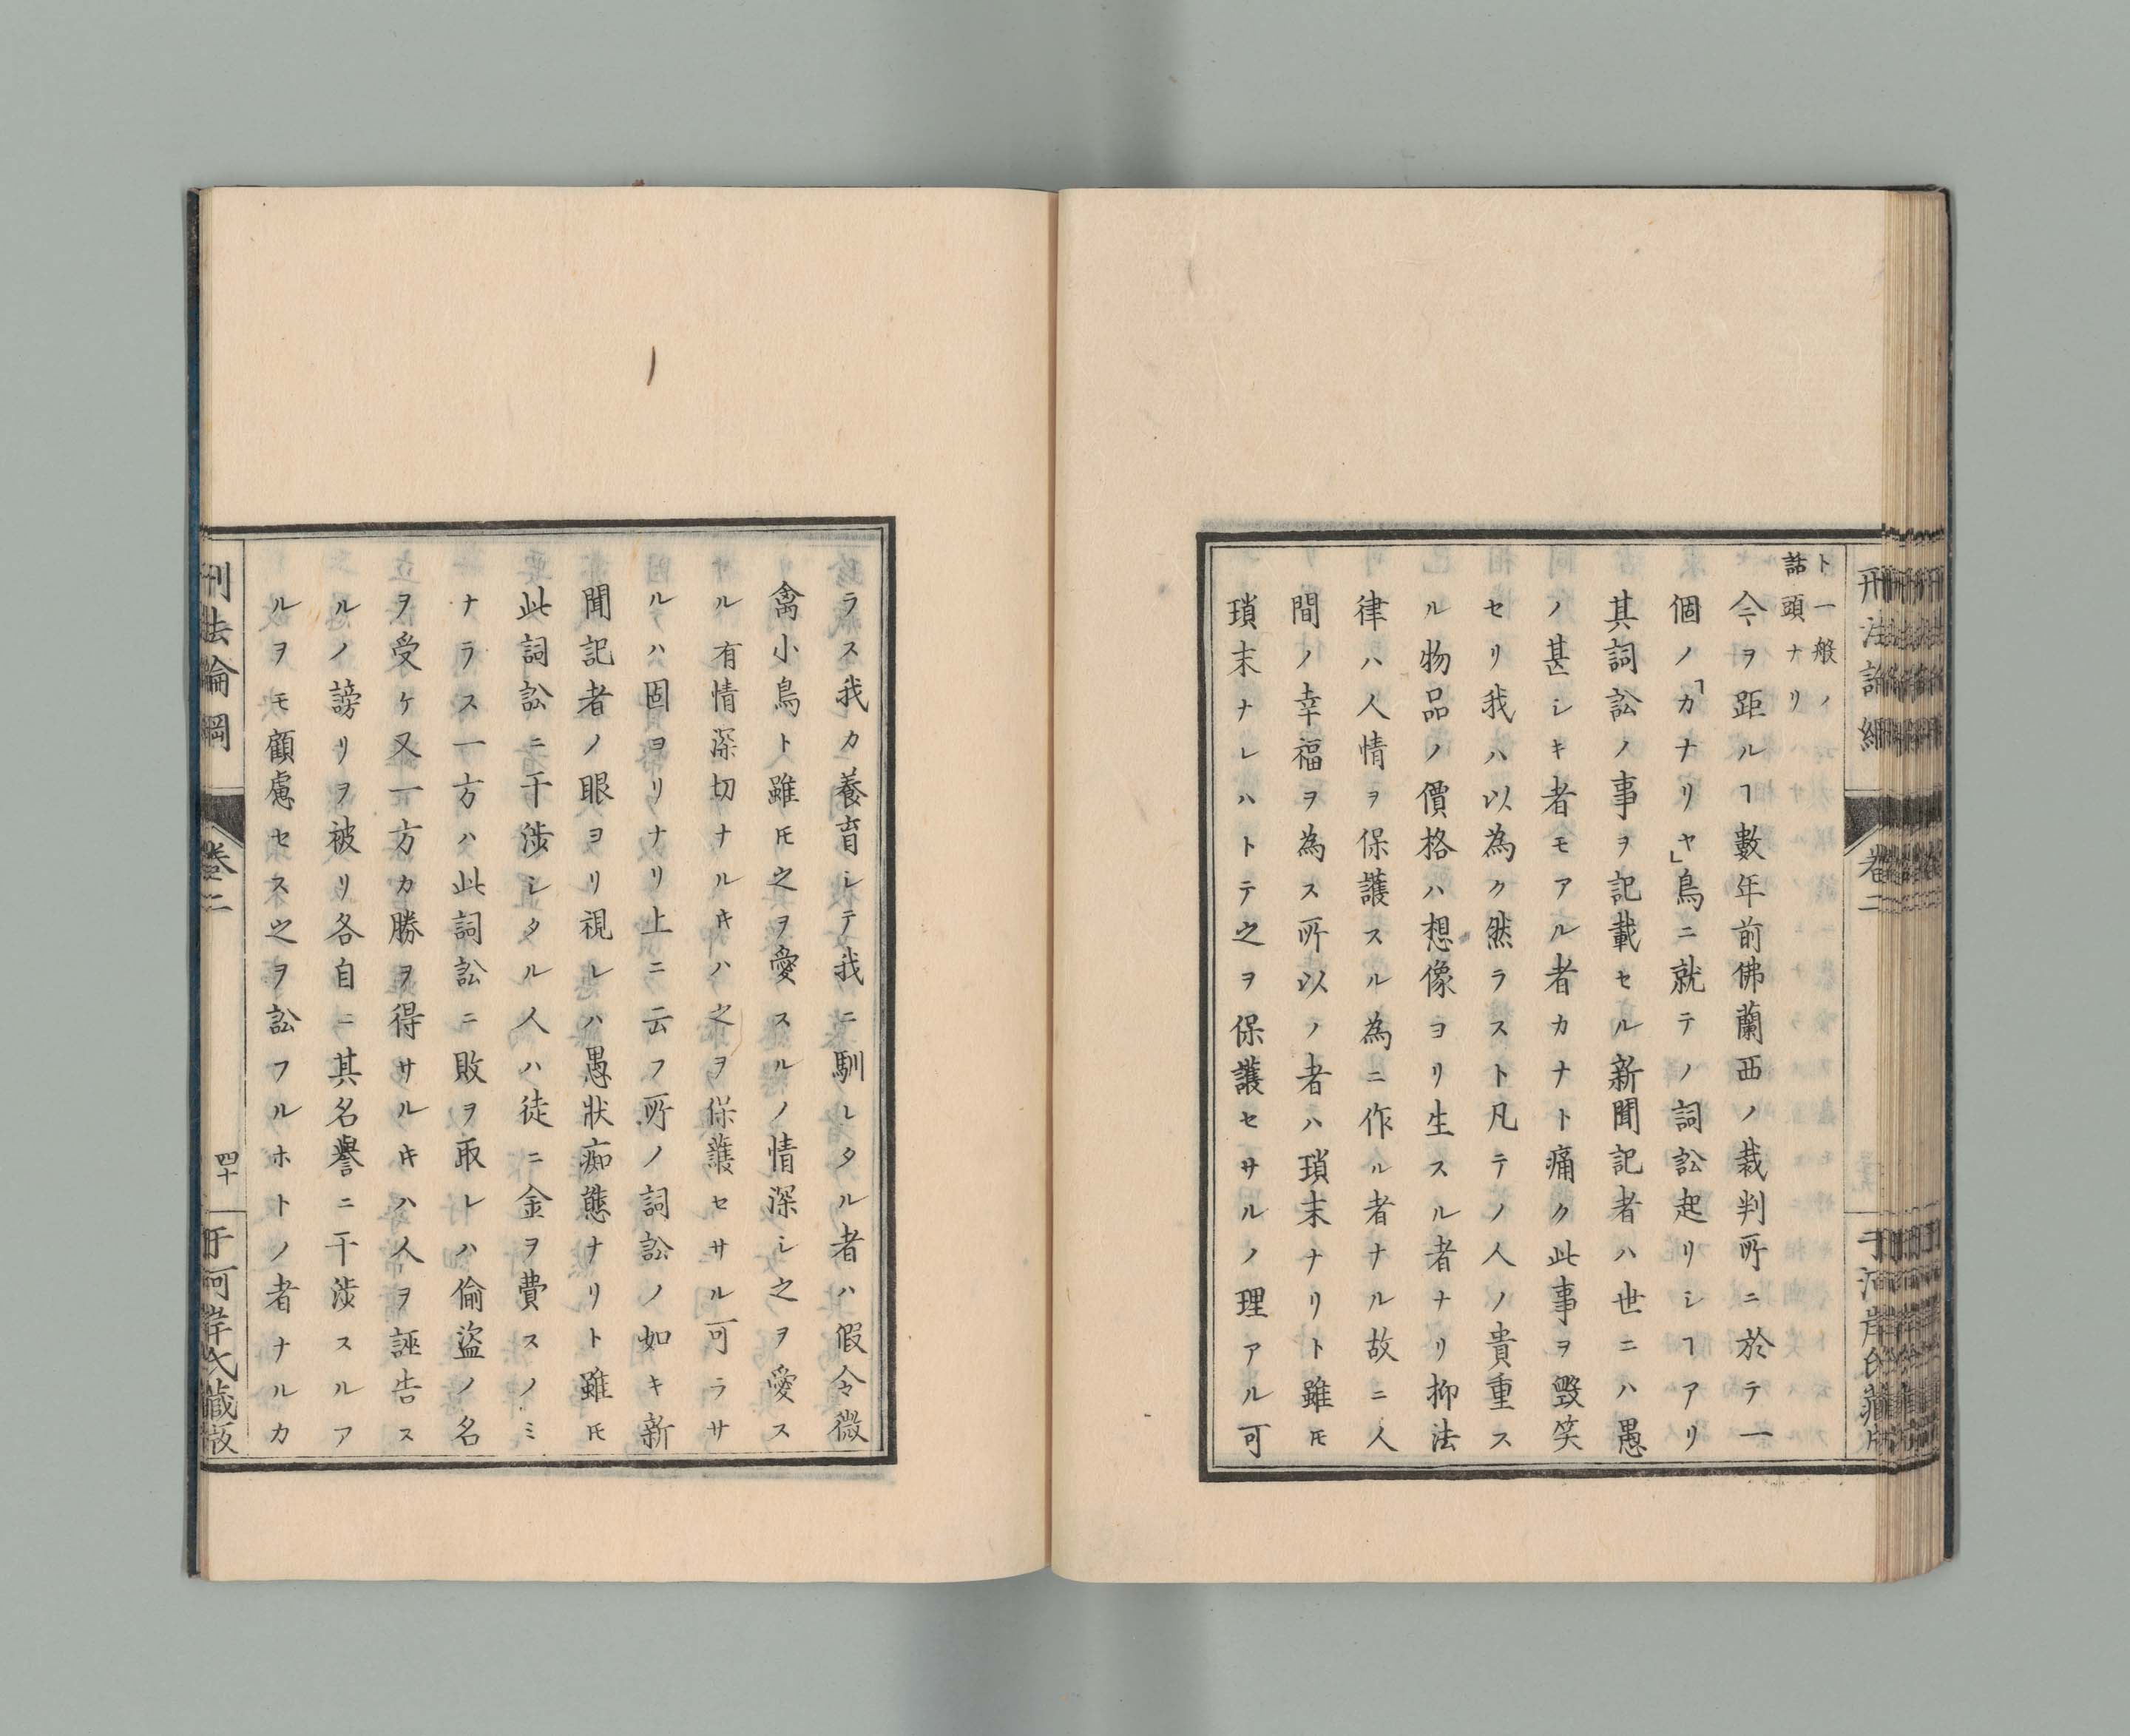 刑法論綱
卷二
于河岸氏藏版
ト一般ノ
話頭ナリ
今ヲ距ルヿ數年前佛蘭西ノ裁判所ニ於テ一
個ノ「カナリヤ」鳥ニ就テノ詞訟起リシヿアリ
其詞訟ノ事ヲ記載セル新聞記者ハ世ニハ愚
ノ甚シキ者モアル者カナト痛ク此事ヲ毀笑
セリ我ハ以為ク然ラスト凡テノ人ノ貴重ス
ル物品ノ價格ハ想像ヨリ生スル者ナリ抑法
律ハ人情ヲ保護スル為ニ作ル者ナル故ニ人
間ノ幸福ヲ為ス所以ノ者ハ瑣末ナリト雖𪜈
瑣末ナレハトテ之ヲ保護セサルノ理アル可
ラス我カ養育シテ我ニ馴レタル者ハ假令微
禽小鳥ト雖𪜈之ヲ愛スルノ情深シ之ヲ愛ス
ル有情深切ナルキハ之ヲ保護セサル可ラサ
ルハ固ヨリナリ上ニ云フ所ノ詞訟ノ如キ新
聞記者ノ眼ヨリ視レハ愚狀痴態ナリト雖𪜈
此詞訟ニ干渉シタル人ハ徒ニ金ヲ費スノミ
ナラス一方ハ此詞訟ニ敗ヲ取レハ偷盜ノ名
ヲ受ケ又一方カ勝ヲ得サルキハ人ヲ誣告ス
ルノ謗リヲ被リ各自ニ其名譽ニ干渉スルア
ルヲモ顧慮セス之ヲ訟フルホトノ者ナルカ
刑法論綱
卷二
四十
于河岸氏藏版